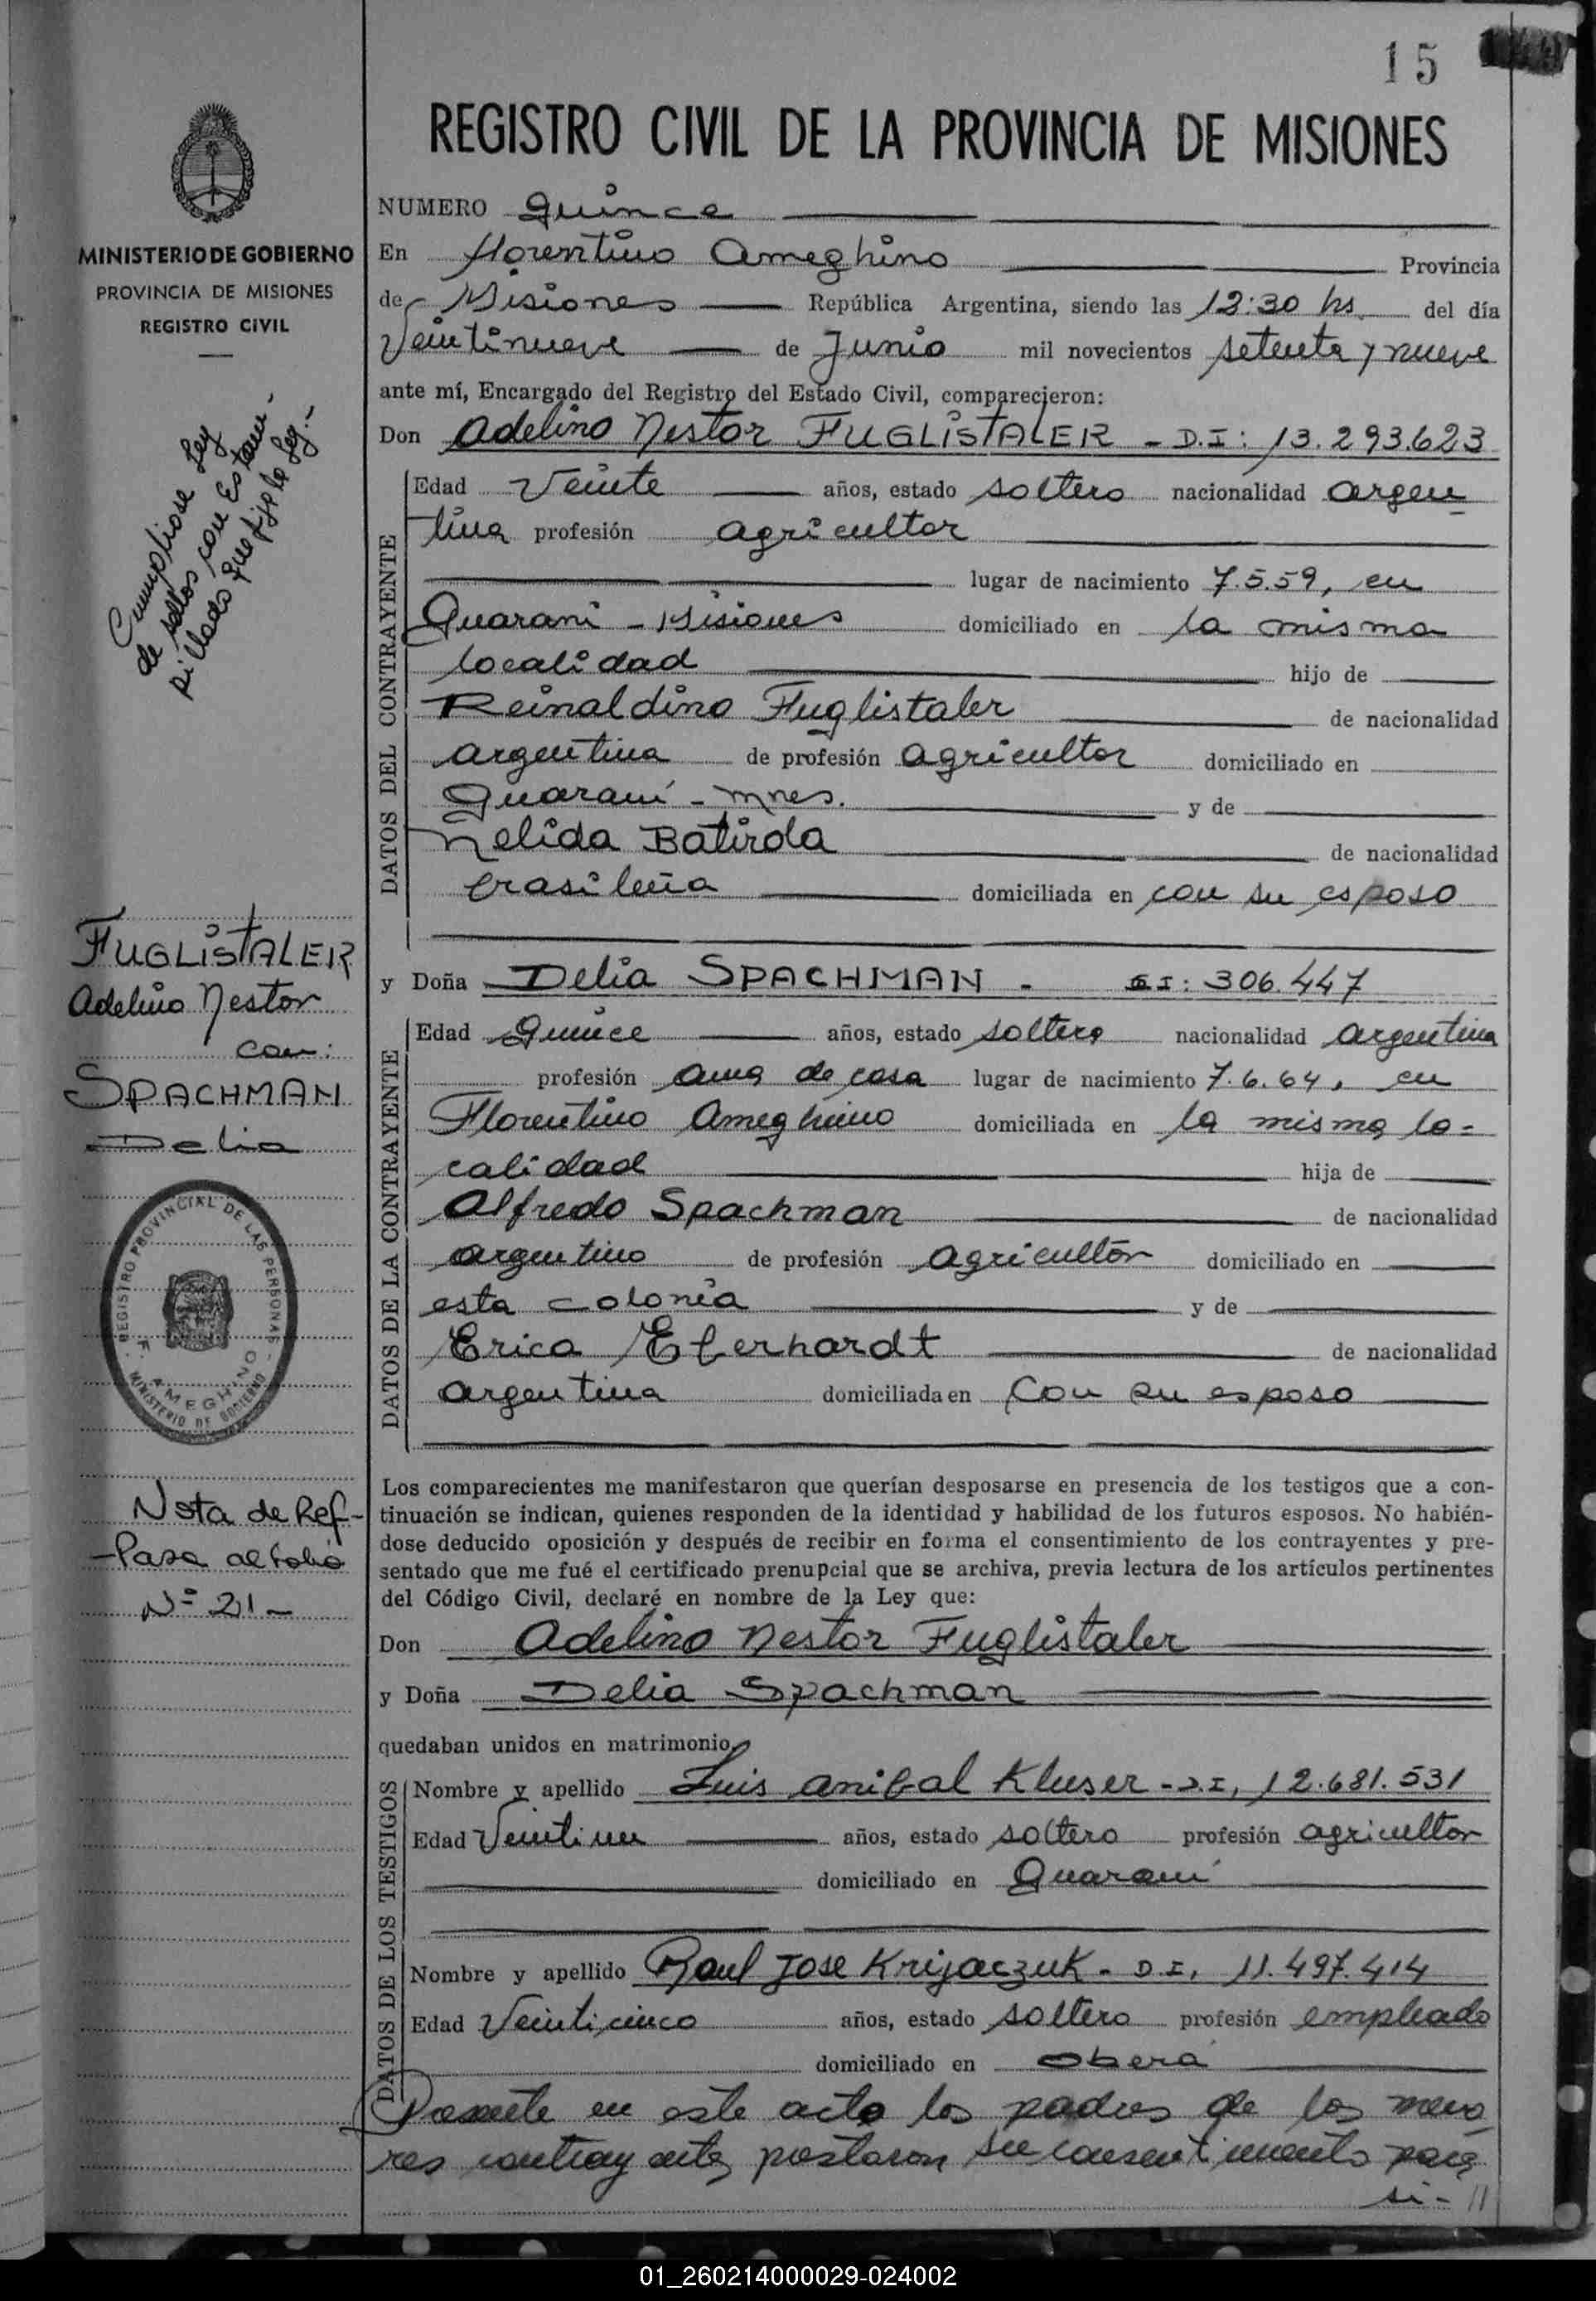 15
REGISTRO CIVIL DE LA PROVINCIA DE MISIONES
MINISTERIO DE GOBIERNO
PROVINCIA DE MISIONES
REGISTRO CIVIL
Cumpliose Ley
de sellos con Estam-
pillado que fija la Ley.-
FUGLISTALER
Adelino Nestor
con:
SPACHMAN
Delia
REGISTRO PROVINCIAL DE LAS PERSONAS
F. AMEGHINO
MINISTERIO DE GOBIERNO
Nota de Ref-
-Pasa al folio
Nº 21-
NUMERO Quince
En Florentino Ameghino Provincia
de Misiones República Argentina, siendo las 12:30 hs. del día
Veintinueve de Junio mil novecientos setenta y nueve
ante mí, Encargado del Registro del Estado Civil, comparecieron:
Don Adelino Nestor FUGLISTALER - D.I: 13.293.623
DATOS DEL CONTRAYENTE
Edad Veinte años, estado soltero nacionalidad argen
tina profesión agricultor
lugar de nacimiento 7.5.59, en
Guarani - Misiones domiciliado en la misma
localidad hijo de
Reinaldino Fuglistaler de nacionalidad
argentina de profesión agricultor domiciliado en
Guaraní - Mnes. y de
Nelida Batirola de nacionalidad
brasileña domiciliada en con su esposo
y Doña Delia SPACHMAN - I: 306.447
DATOS DE LA CONTRAYENTE
Edad Quince años, estado soltera nacionalidad argentina
profesión ama de casa lugar de nacimiento 7.6.64, en
Florentino Ameghino domiciliada en la misma lo-
calidad hija de
Alfredo Spachman de nacionalidad
argentino de profesión agricultor domiciliado en
esta colonia y de
Erica Eberhardt de nacionalidad
argentina domiciliada en con su esposo
Los comparecientes me manifestaron que querían desposarse en presencia de los testigos que a con-
tinuación se indican, quienes responden de la identidad y habilidad de los futuros esposos. No habién-
dose deducido oposición y después de recibir en forma el consentimiento de los contrayentes y pre-
sentado que me fué el certificado prenupcial que se archiva, previa lectura de los artículos pertinentes
del Código Civil, declaré en nombre de la Ley que:
Don Adelino Nestor Fuglistaler
y Doña Delia Spachman
quedaban unidos en matrimonio
DATOS DE LOS TESTIGOS
Nombre y apellido Luis anibal Kluser - D.I, 12.681.531
Edad Veintiun años, estado soltero profesión agricultor
domiciliado en Guaraní
Nombre y apellido Raul Jose Krijaczuk - D.I, 11.497.414
Edad Veinticinco años, estado soltero profesión empleado
domiciliado en Oberá
Presente en este acto los padres de los meno
res contrayentes prestaron su consentimiento para
si - //
01_260214000029-024002